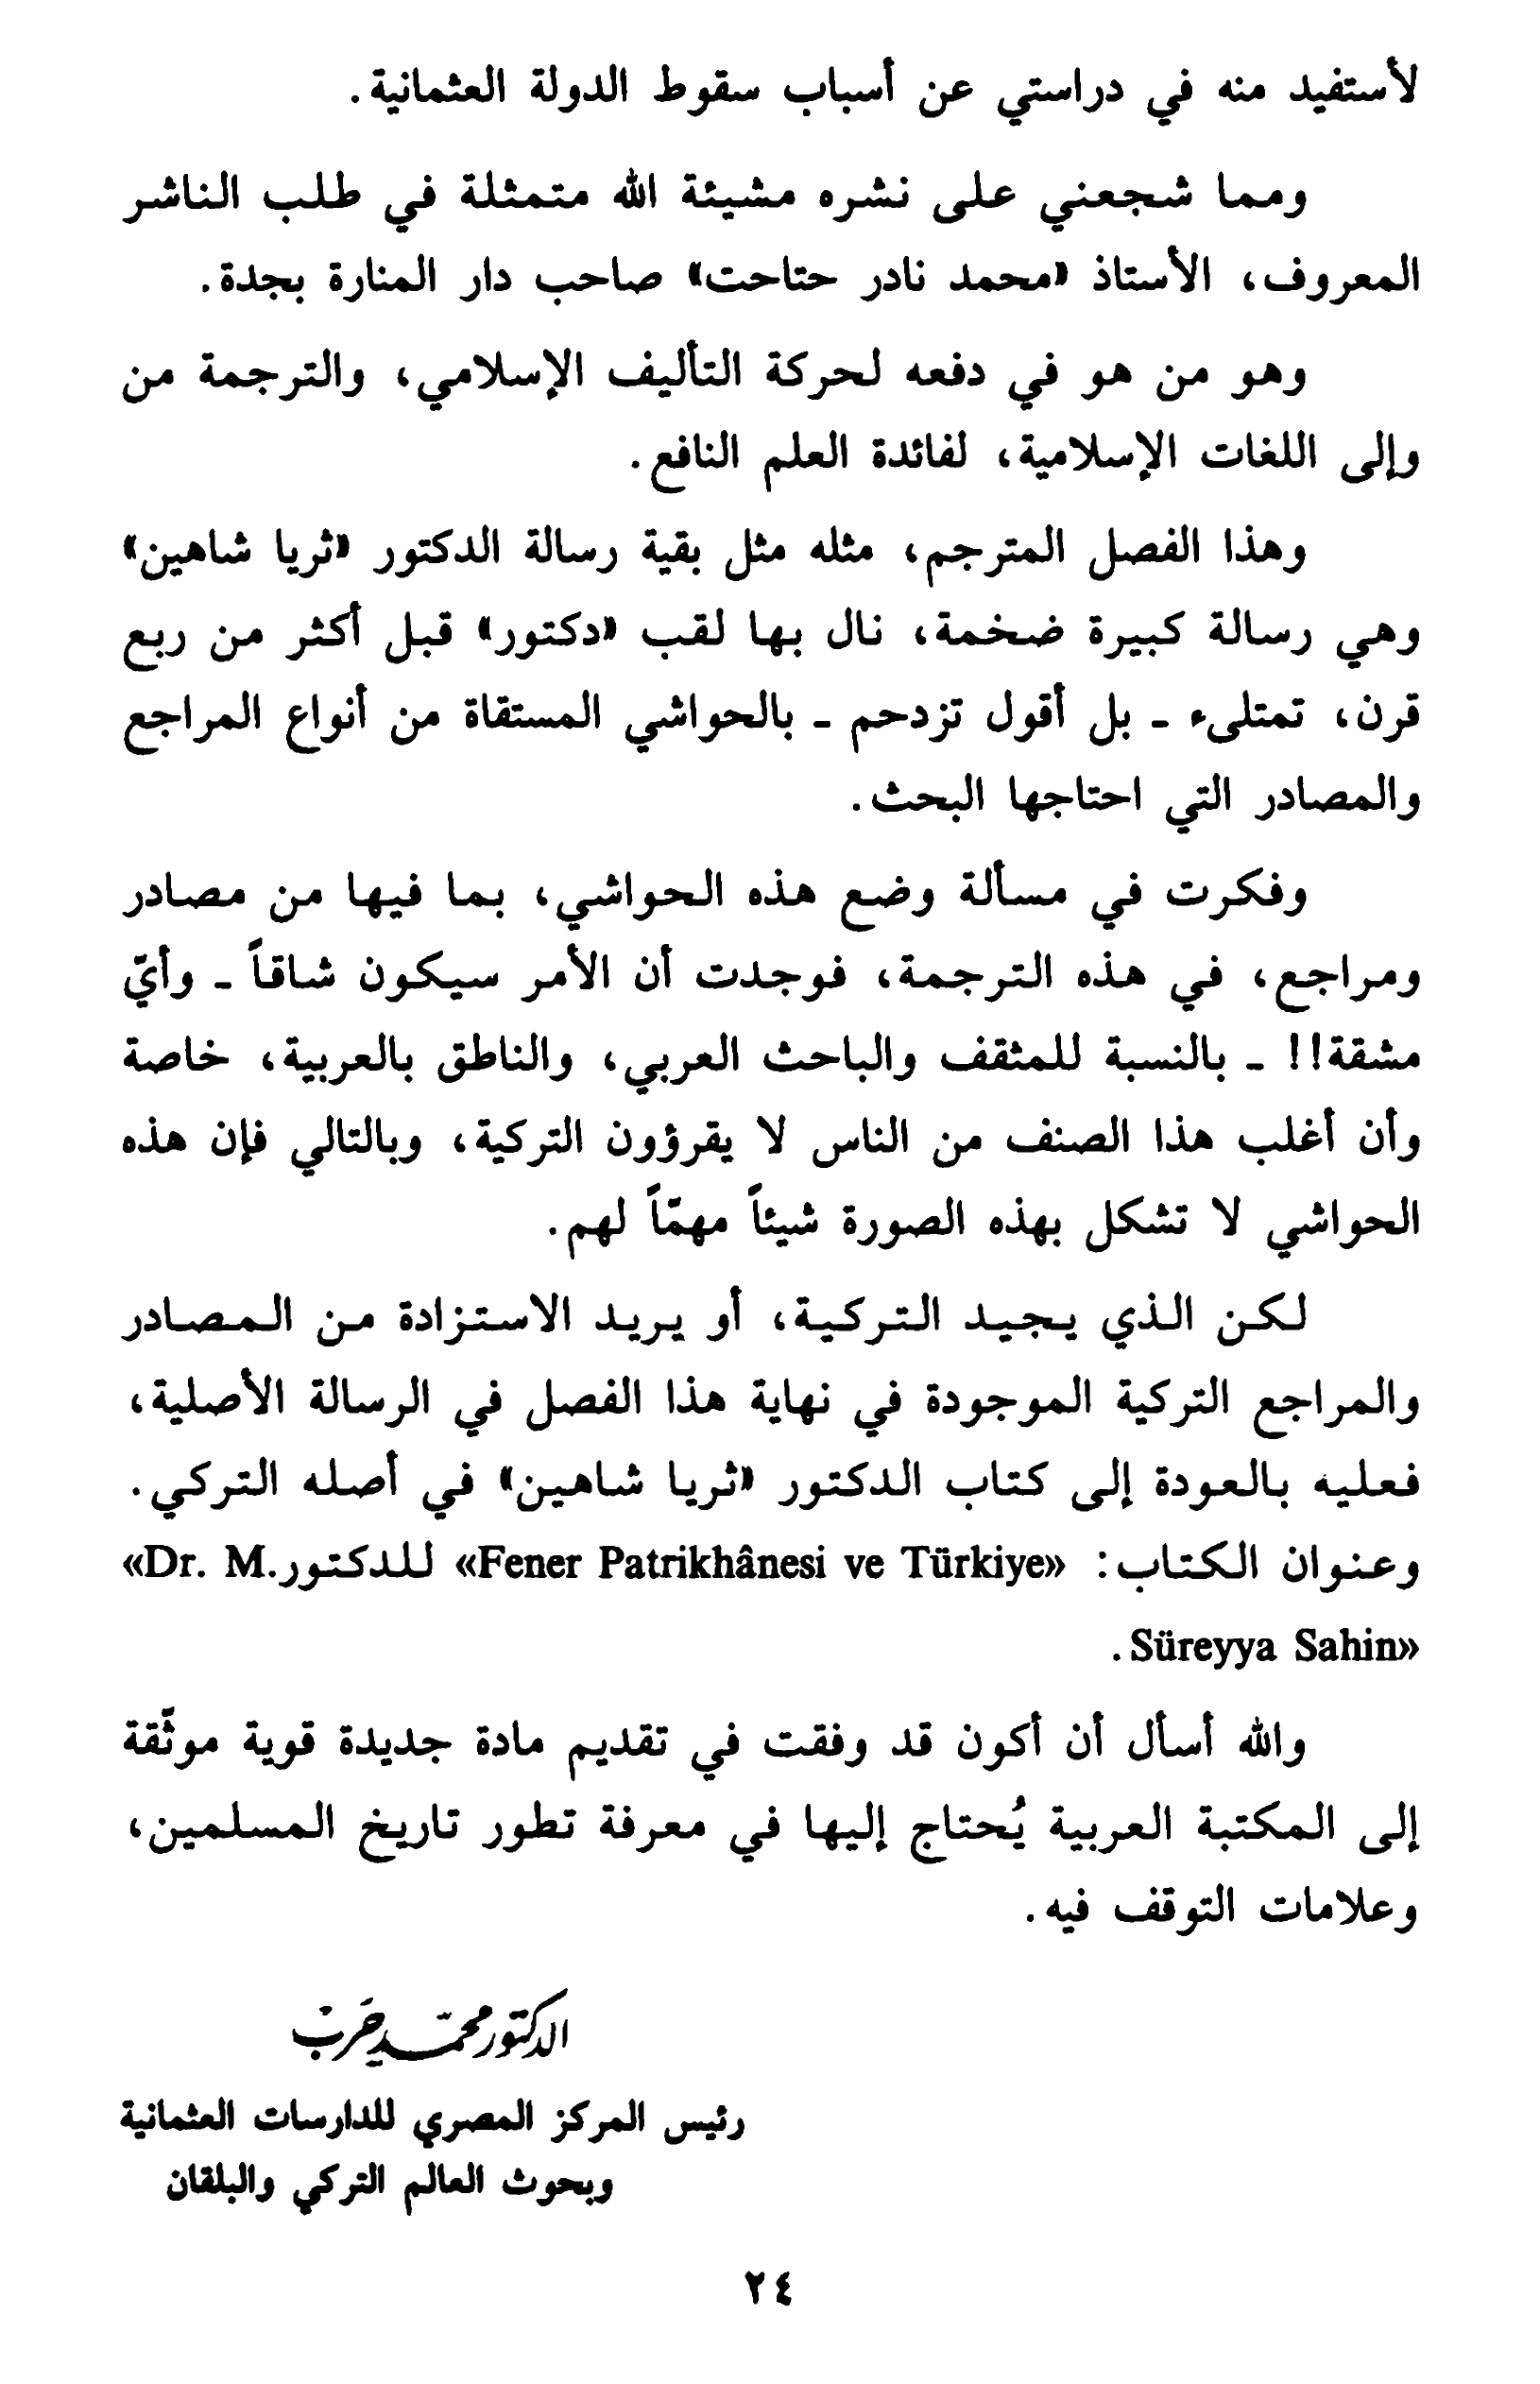 لأستفيد منه في دراستي عن أسباب سقوط الدولة العثمانية.
ومما شجعني على نشره مشيئة الله متمثلة في طلب الناشر
المعروف، الأستاذ «محمد نادر حتاحت» صاحب دار المنارة بجدة.
وهو من هو في دفعه لحركة التأليف الإسلامي، والترجمة من
وإلى اللغات الإسلامية، لفائدة العلم النافع.
وهذا الفصل المترجم، مثله مثل بقية رسالة الدكتور «ثريا شاهين»
وهي رسالة كبيرة ضخمة، نال بها لقب «دكتور» قبل أكثر من ربع
قرن، تمتلىء - بل أقول تزدحم - بالحواشي المستقاة من أنواع المراجع
والمصادر التي احتاجها البحث.
وفكرت في مسألة وضع هذه الحواشي، بما فيها من مصادر
ومراجع، في هذه الترجمة، فوجدت أن الأمر سيكون شاقاً - وأيّ
مشقة!! - بالنسبة للمثقف والباحث العربي، والناطق بالعربية، خاصة
وأن أغلب هذا الصنف من الناس لا يقرؤون التركية، وبالتالي فإن هذه
الحواشي لا تشكل بهذه الصورة شيئاً مهمّاً لهم.
لكن الذي يجيد التركية، أو يريد الاستزادة من المصادر
والمراجع التركية الموجودة في نهاية هذا الفصل في الرسالة الأصلية،
فعليه بالعودة إلى كتاب الدكتور «ثريا شاهين» في أصله التركي.
وعنوان الكتاب: «Fener Patrikhânesi ve Türkiye» للدكتور «Dr. M.
Süreyya Sahin».
والله أسأل أن أكون قد وفقت في تقديم مادة جديدة قوية موثّقة
إلى المكتبة العربية يُحتاج إليها في معرفة تطور تاريخ المسلمين،
وعلامات التوقف فيه.
الدكتور محمّد حَربْ
رئيس المركز المصري للدارسات العثمانية
وبحوث العالم التركي والبلقان
٢٤